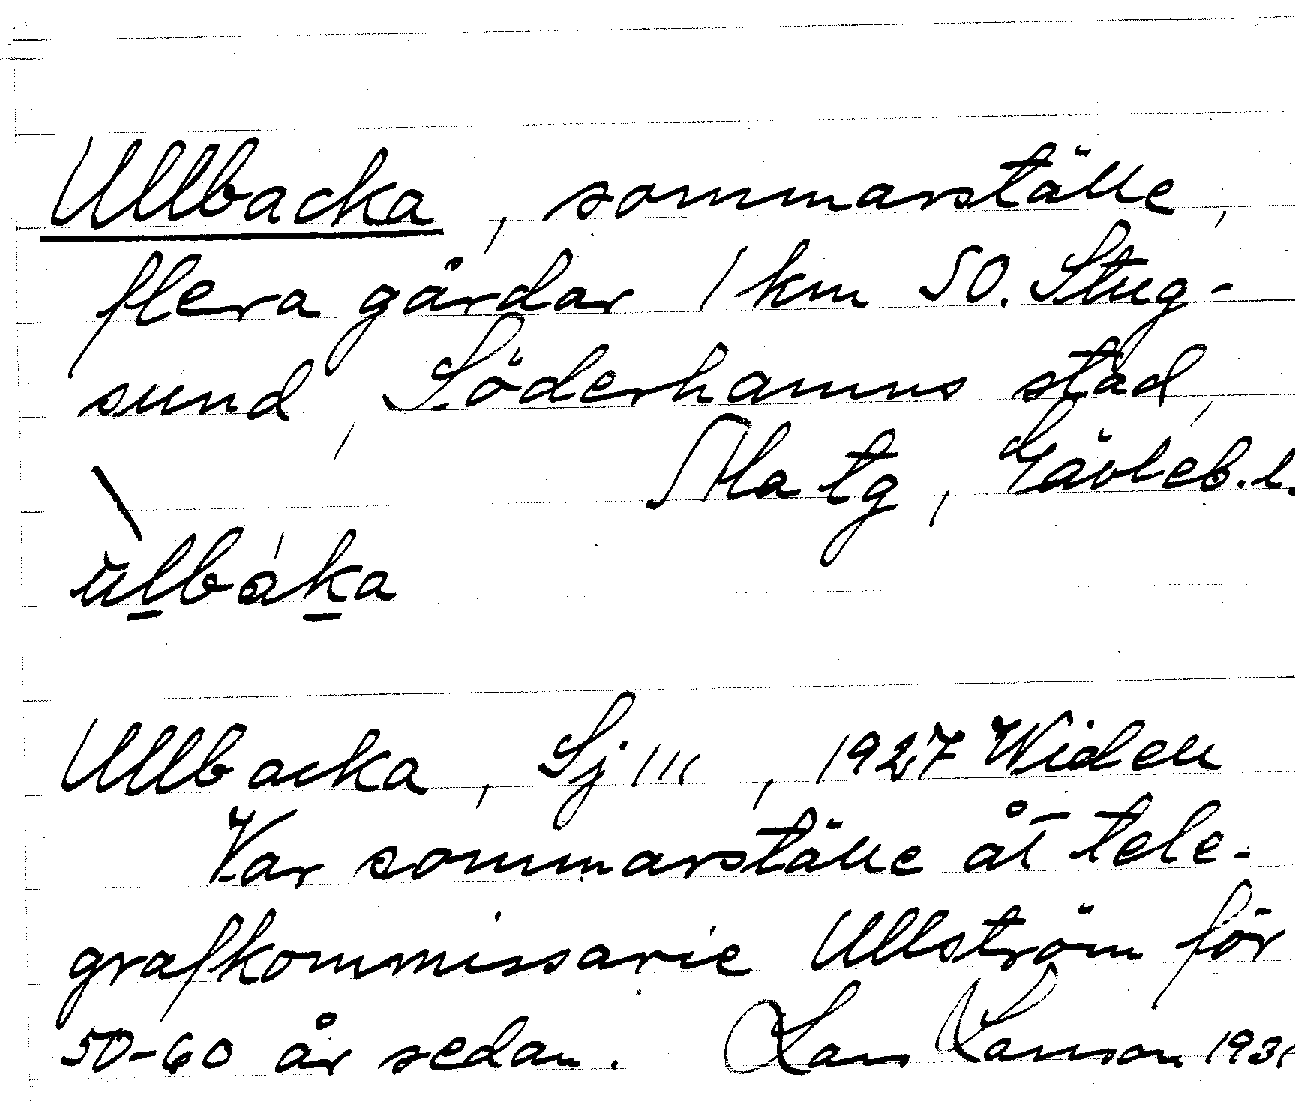 Ullbacka, sommarställe,
flera gårdar 1 km SO. Stug-
sund, Söderhamns stad,
Ala tg, Gävleb. l.
ulbaka
Ullbacka, Sj 111, 1927 Widell
Var sommarställe åt tele-
grafkommissarie Ullström för
50-60 år sedan. Lars Larsson